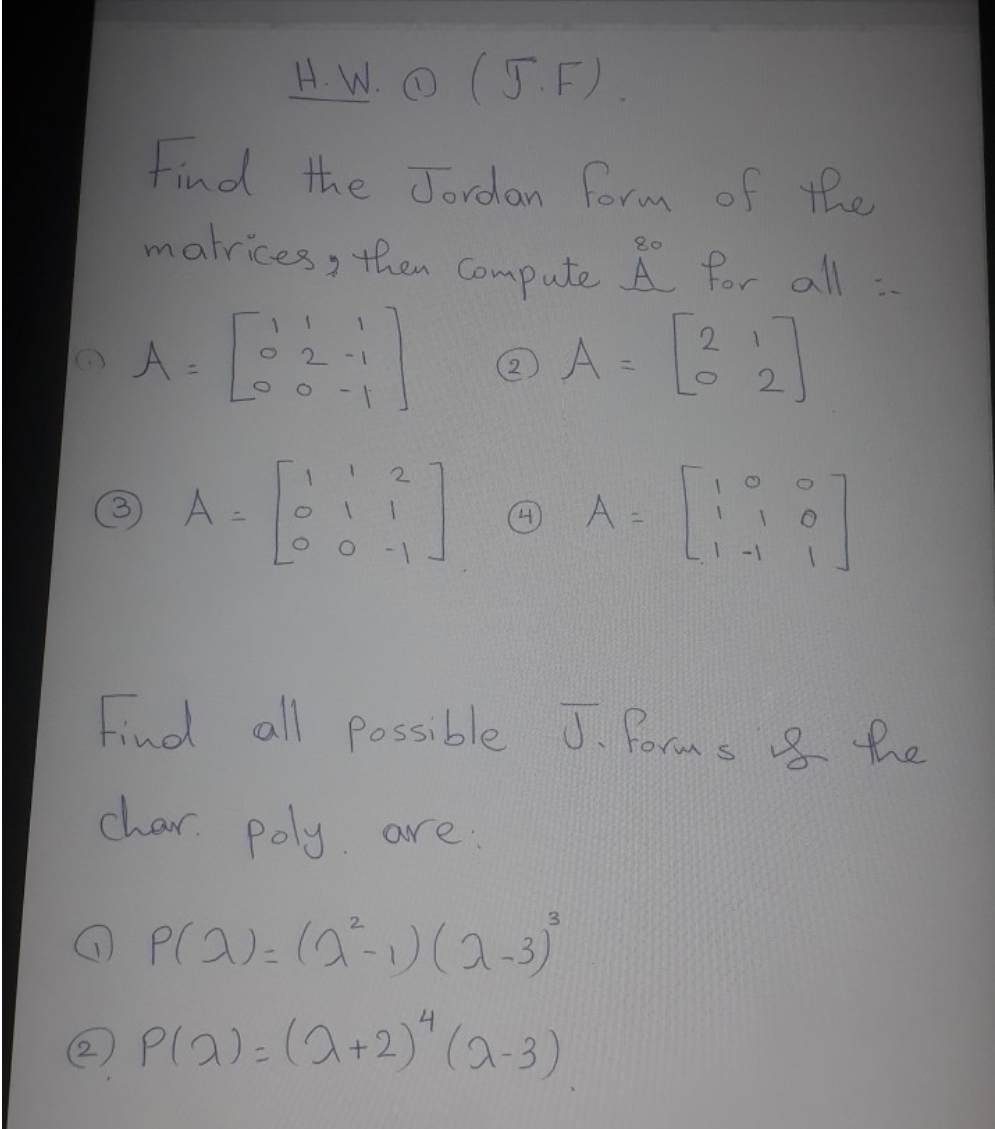 H.W. ① (J.F).
Find the Jordan form of the
matrices, then compute A⁸⁰ for all :-
① A = [1 1 1; 0 2 -1; 0 0 -1] ② A = [2 1; 0 2]
③ A = [1 1 2; 0 1 1; 0 0 -1] ④ A = [1 0 0; 1 1 0; 1 -1 1]
Find all possible J. forms if the
char. poly. are:
① P(λ)=(λ²-1)(λ-3)³
② P(λ)=(λ+2)⁴(λ-3).